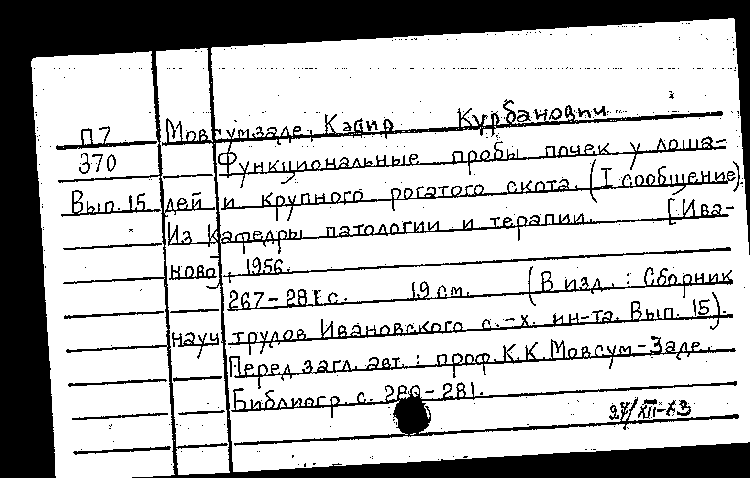 П7 Мовсумзаде, Кэбир Курбанович
370 Функциональные пробы почек у лоша-
Вып. 15 дей и крупного рогатого скота. (I сообщение)
Из кафедры патологии и терапии. [Ива-
ново], 1956.
267-281 с. 19 см. (В изд.: Сборник
науч трудов Ивановского с.-х. ин-та. Вып. 15).
Перед загл. авт.: проф. К.К. Мовсум-Заде.
Библиогр. с. 280-281.